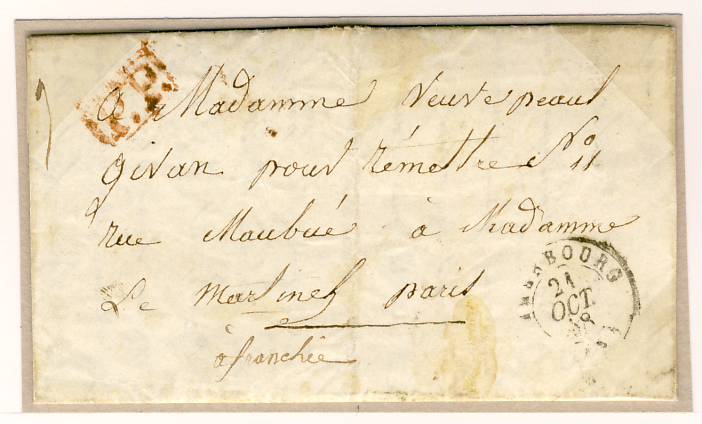 P.P.
a Madamme veuve peaul
givan pour rémettre No 11
rue Maubué à Madamme
De Martinel paris
afranchie
21
OCT.